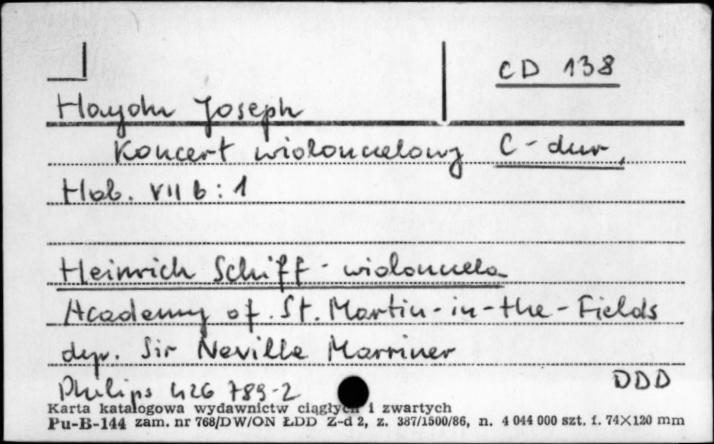 CD 138
Haydn Joseph
Koncert wiolonczelowy C-dur,
Hob. VII b : 1
Heinrich Schiff - wiolonczela
Academy of. St. Martin-in-the-Fields
dyr. Sir Neville Marriner
Philips 426 789-2 DDD
Karta katalogowa wydawnictw ciągłych i zwartych
Pu-B-144 zam. nr 768/DW/ON ŁDD Z-d 2, z. 387/1500/86, n. 4 044 000 szt. f. 74×120 mm